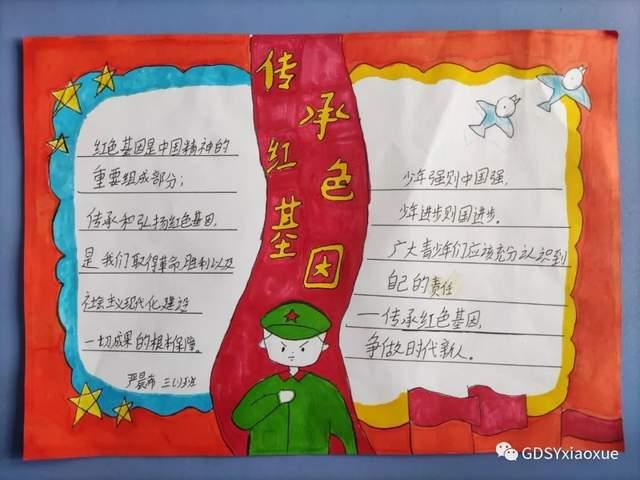 传承红色基因
红色基因是中国精神的
重要组成部分;
传承和弘扬红色基因,
是我们取得革命胜利以及
社会主义现代化建设
一切成果的根本保障。
三(1)班
少年强则中国强,
少年进步则国进步。
广大青少年们应该充分认识到
自己的责任
—传承红色基因,
争做时代新人。
GDSYxiaoxue